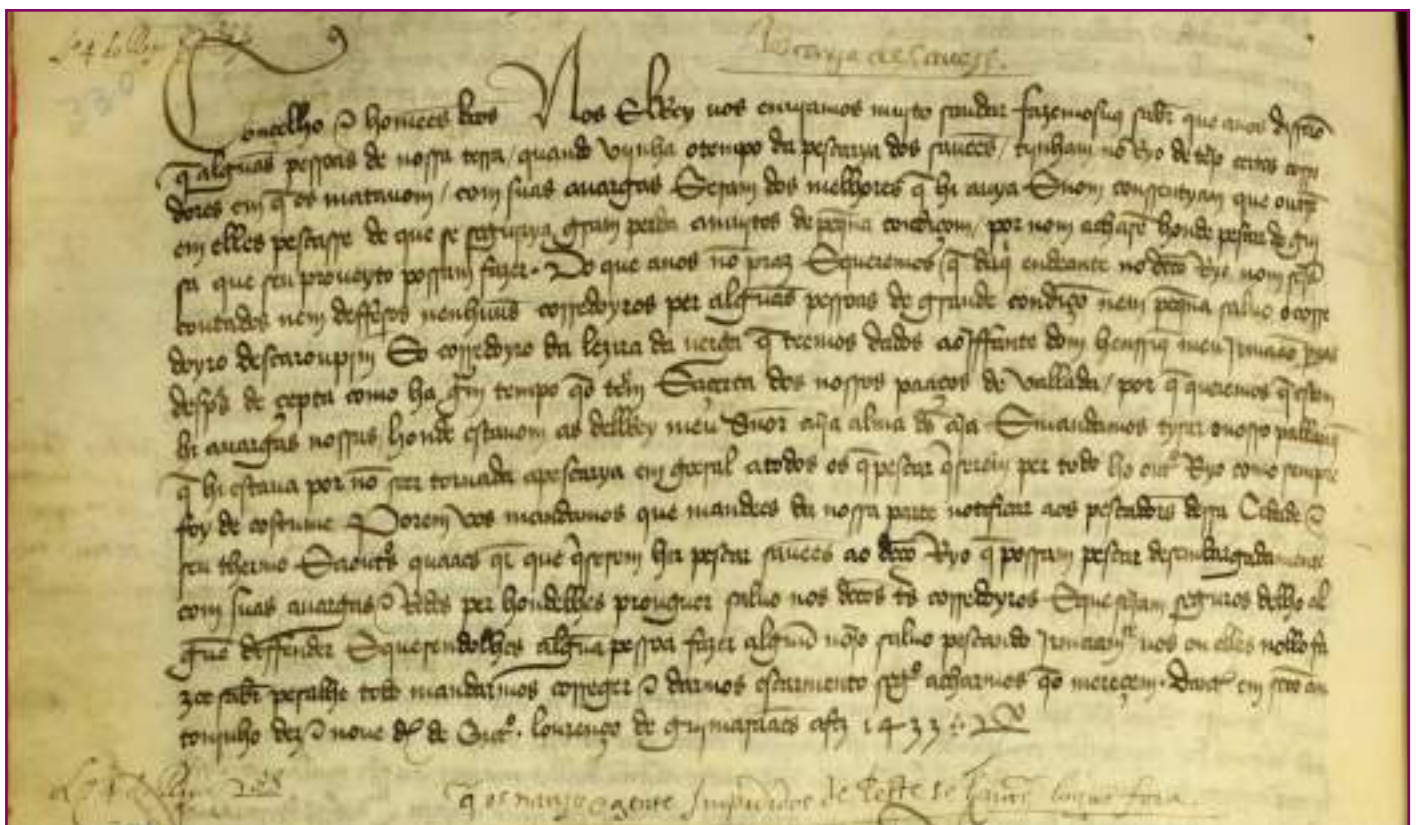 pescarya de Saveẽs.
Concelho e homeẽs boõs Nos ElRey vos enviamos muyto saudar fazemosvos sabr que anos disserõ
q̃ alguãs pessoas de nossa terra / quando vijnha otempo da pescarya dos saveẽs / tijnham no Ryo de tejo certos corre
dores em q̃ os matavom / com suas avargas E eram dos melhores q̃ hi avya E nom consentyam que outrẽ
em elles pescasse de que se seguya gram perda a muytos de peq̃na condiçom / por nom acharẽ honde pescar de gui
sa que seu proveyto possam fazer. Do que anos nõ praz E queremos q̃ daq̃ endeante no dcõ Ryo nom sejã
coutados nem deffesos nenhuũs corredoyros per alguãs pessoas de grande condiçõ nem peq̃na salvo o corre
doyro descaroupym E o corredoyro da lezira da verga q̃ teemos dados ao Iffante dom henrriq̃ meu Irmaão
despos de çepta como ha grã tempo q̃o tem E açerca dos nossos paaços de vallada / por q̃ queremos q̃ estem
hi avargas nossas, honde estavom as delRey meu Snor cuja alma ds aja E mandamos tyrar o nosso
q̃ hi estava por nõ seer tornada apescarya em geeral atodos os q̃ pescar q̃serem per todo ho outro Ryo como sempre
foy de costume Porem vos mandamos que mandees da nossa parte notificar aos pescadores dessa Cidade e
seu thermo E aoutos quaaes qr que q̃serem hir pescar saveẽs ao dcõ Ryo q̃ possam pescar desembargadamente
com suas avargas e redes per hondelhes prouguer salvo nos dcos tres corredoyros E que sejam seguros delho al
guẽ deffender E querendolhes algũa pessoa fazer alguũ nojo salvo pescando vos ou elles nollo fa
zee sabr pera lhe todo mandarmos correger e darmos escarmento segº acharmos q̃o mereçem. Dante em scõ an
tonjnho dez e nove ds de Outº. lourenço de guymaraães a fez 1433